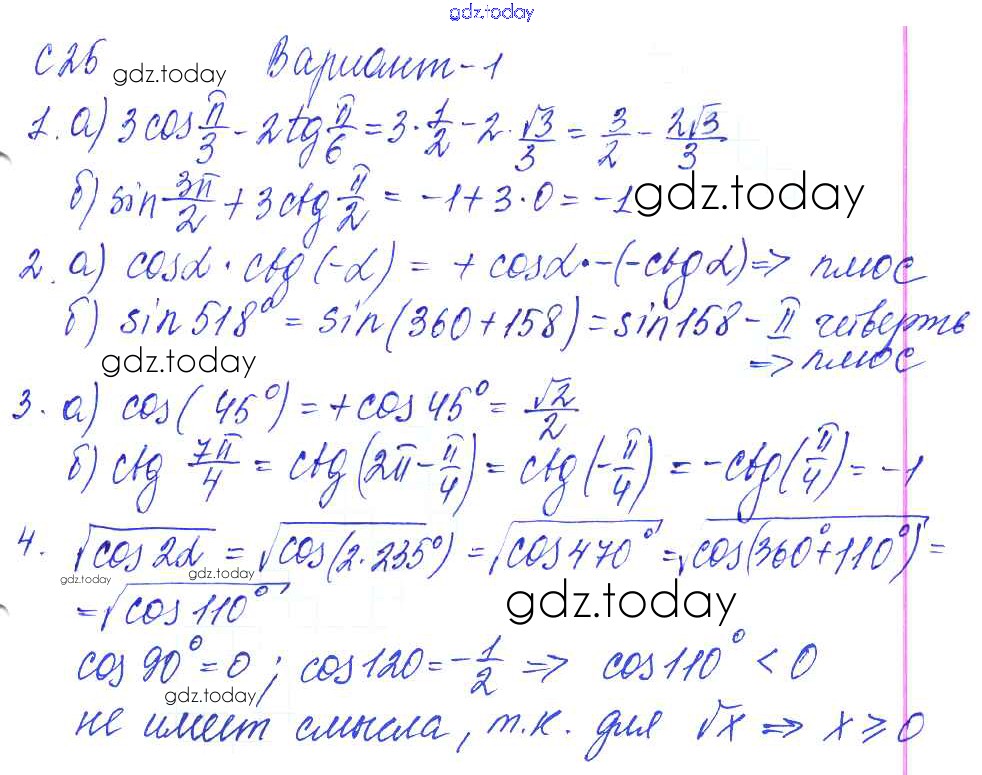 gdz.today
С 25 gdz.today Вариант-1
1. а) 3 cos π/3 - 2tg π/6 = 3·1/2 - 2·√3/3 = 3/2 - 2√3/3
б) sin 3π/2 + 3ctg π/2 = -1 + 3·0 = -1 gdz.today
2. а) cosα · ctg(-α) = + cosα·-(-ctgα) => плюс
б) sin 518° = sin(360+158) = sin158 - II четверть
gdz.today => плюс
3. а) cos( 45°) = + cos 45° = √2/2
б) ctg 7π/4 = ctg(2π - π/4) = ctg(-π/4) = -ctg(π/4) = -1
4. √cos 2α = √cos(2·235°) = √cos 470° = √cos(360°+110°) =
gdz.today gdz.today
= √cos 110° gdz.today
cos 90° = 0 ; cos 120 = -1/2 => cos 110° < 0
gdz.today
не имеет смысла, т.к. для √x => x ≥ 0